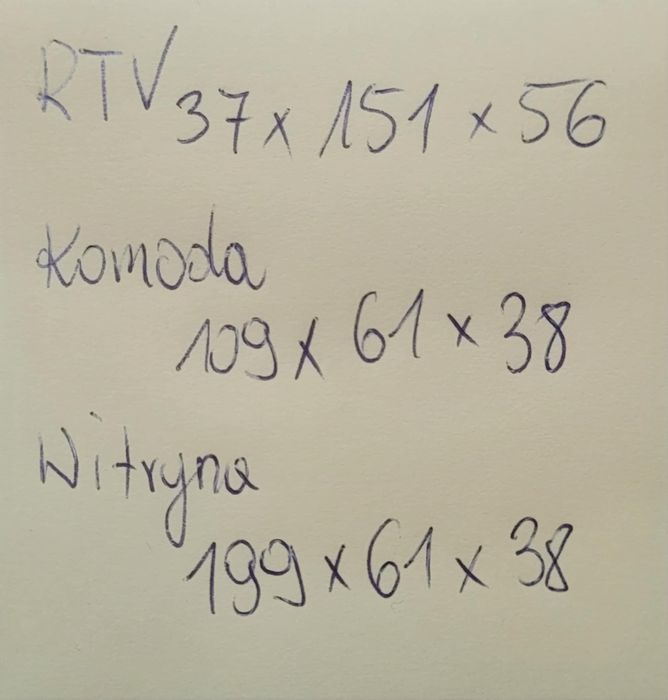 RTV 37 x 151 x 56
Komoda
109 x 61 x 38
Witryna
199 x 61 x 38